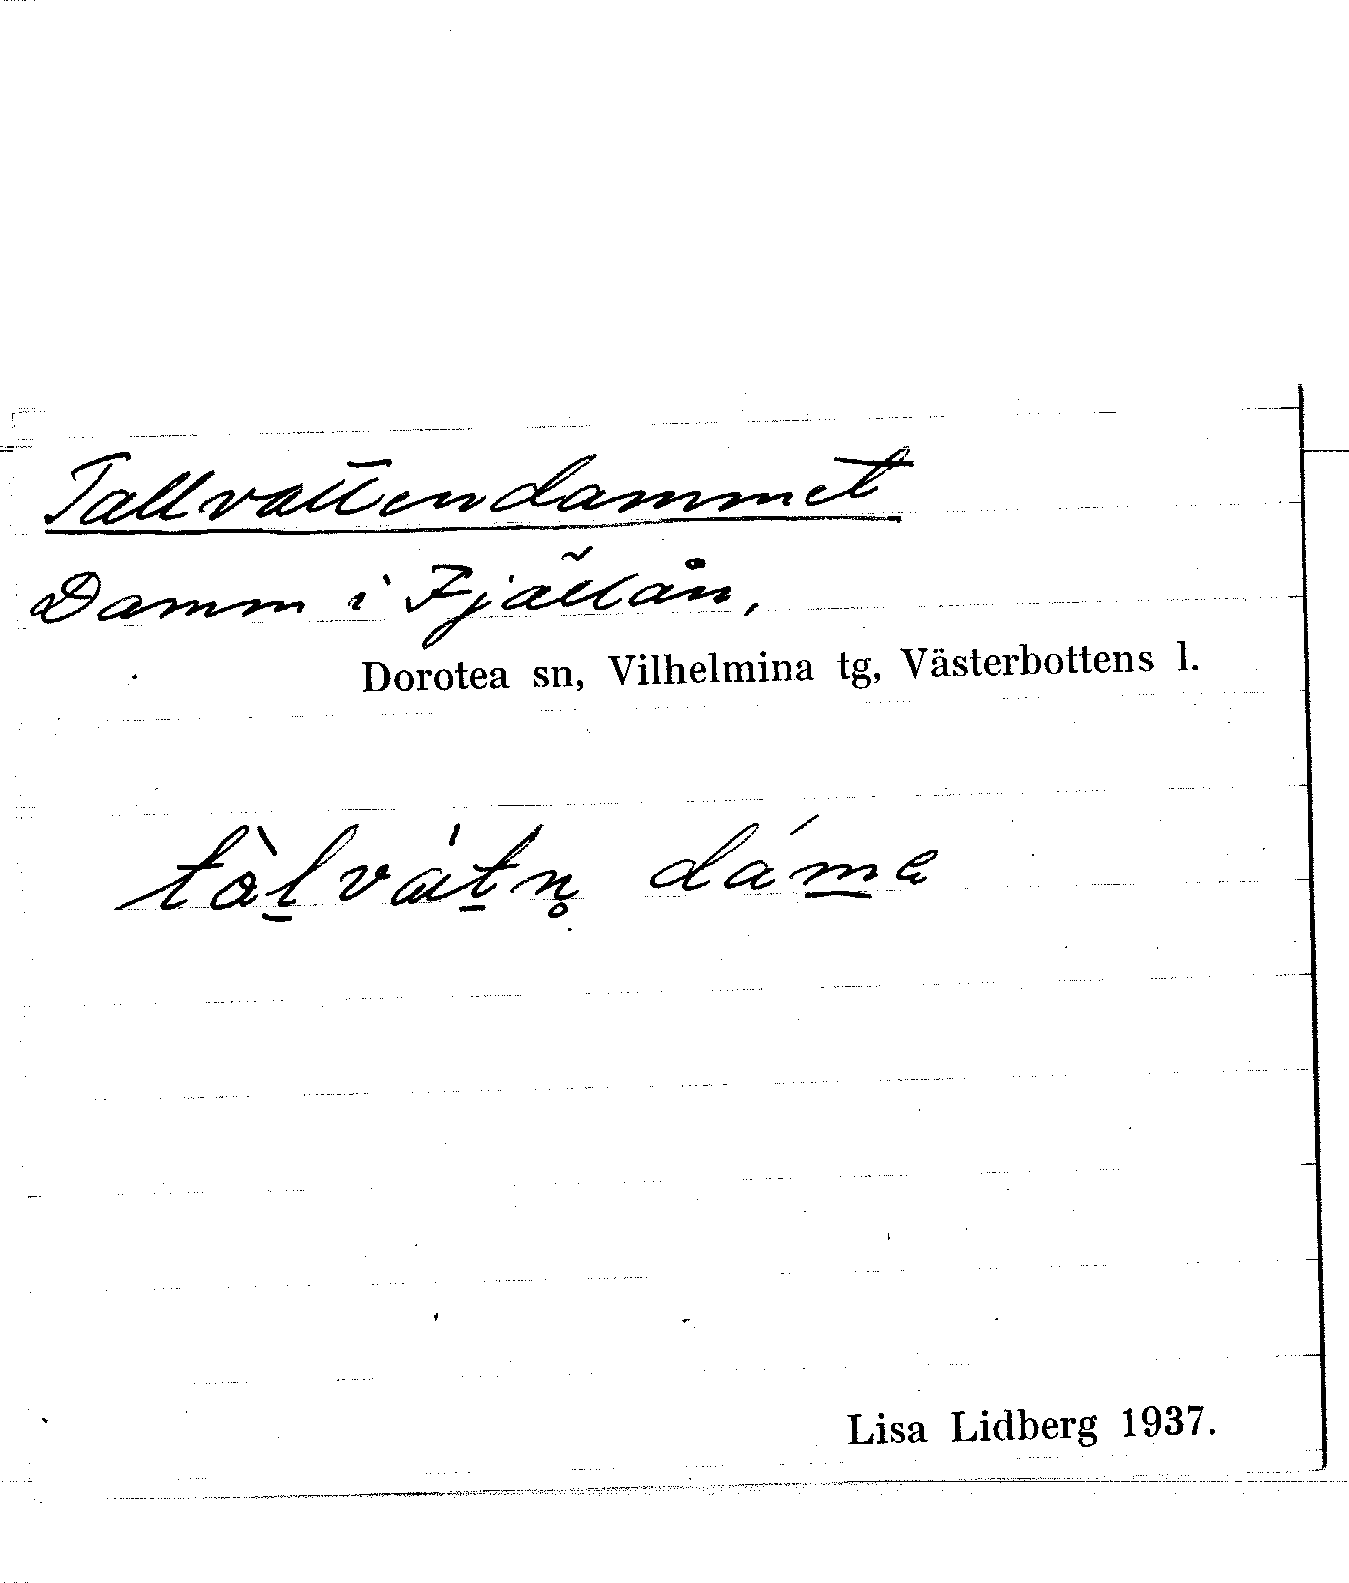 Tallvattendammet
Damm i Fjällån,
Dorotea sn, Vilhelmina tg, Västerbottens l.
tàl̲vát̲n̥ dám̲e
Lisa Lidberg 1937.